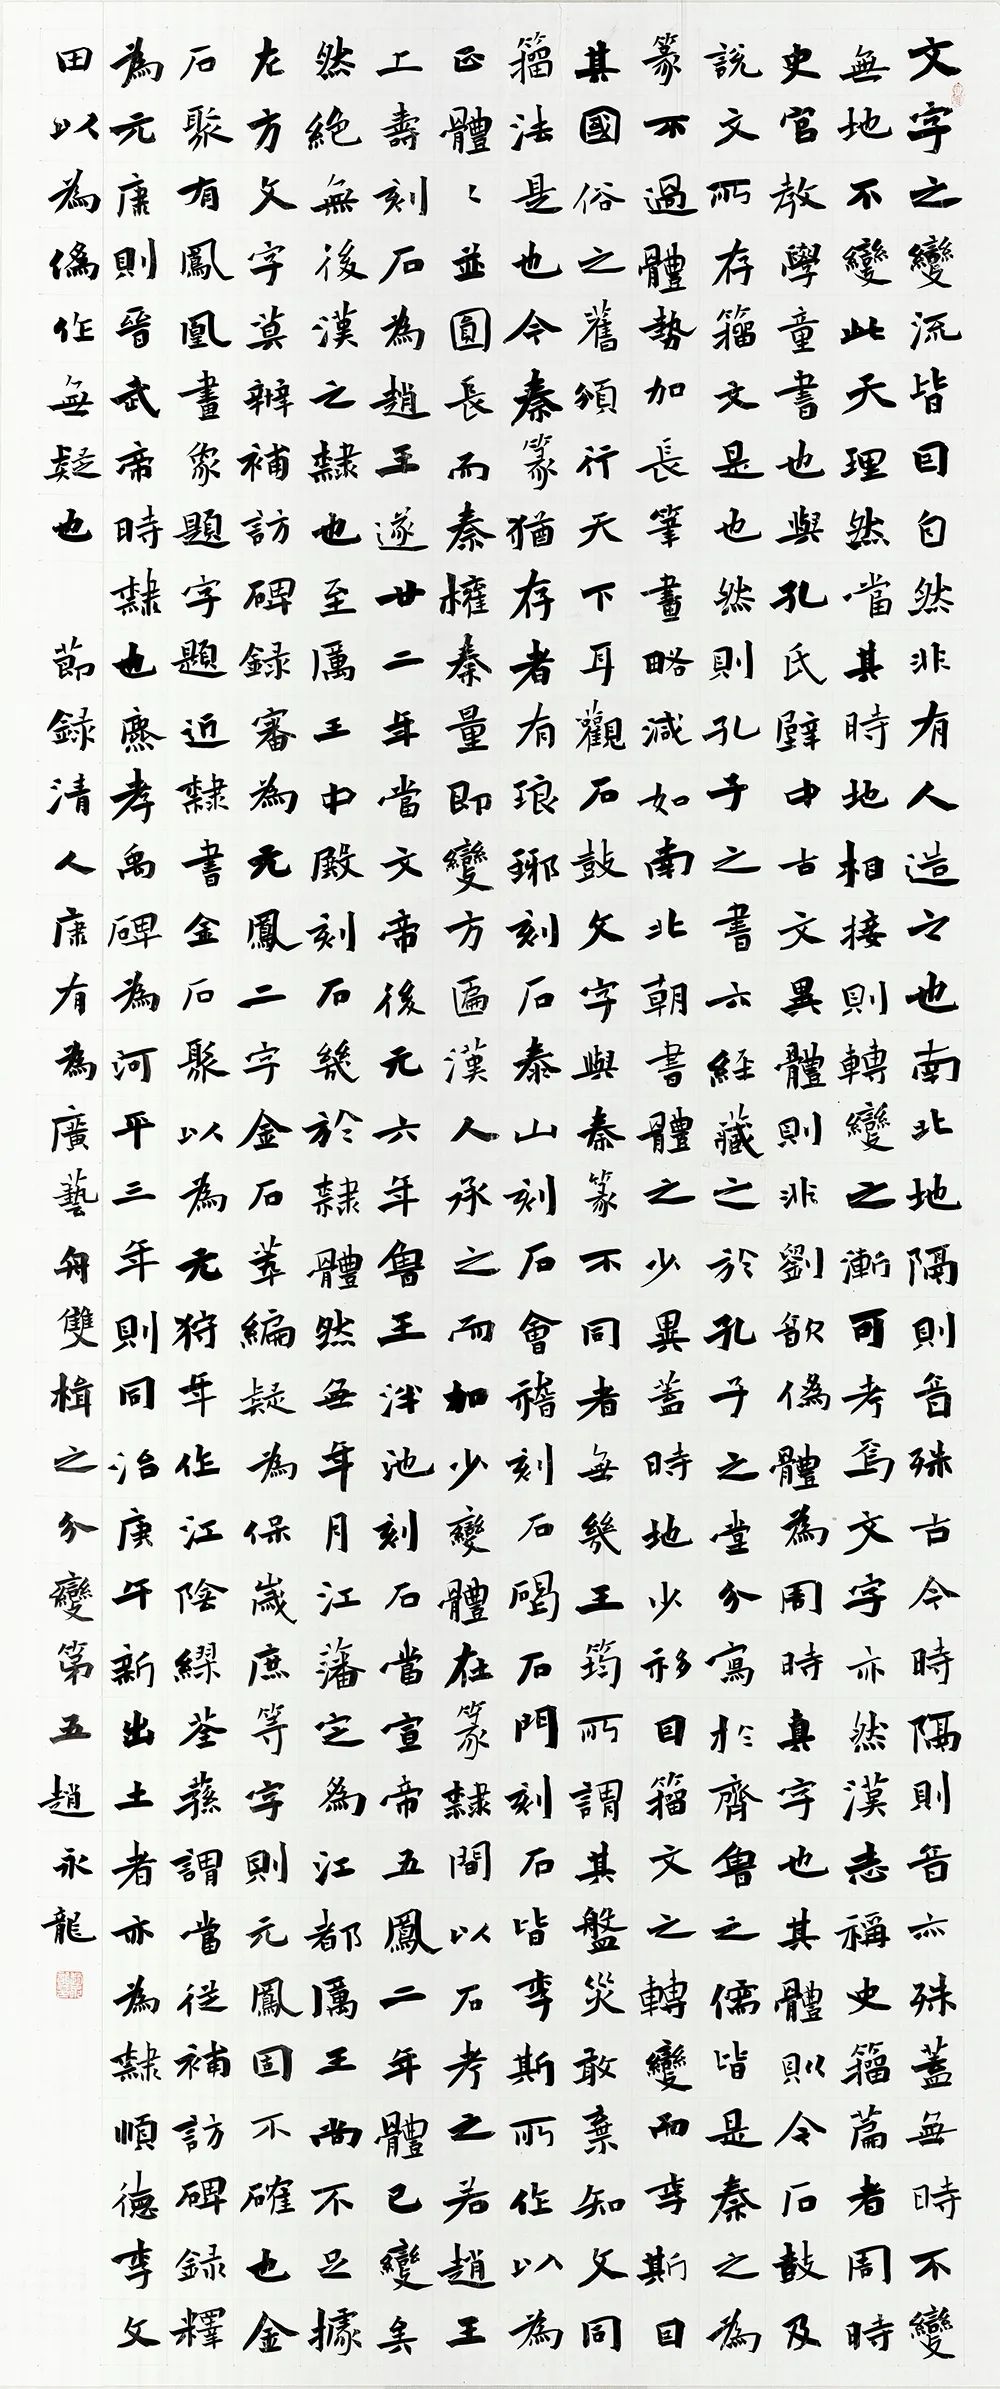 文字之變流皆因自然非有人造之也南北地隔則音殊古今時隔則音亦殊蓋無時不變
無地不變此天理然當其時地相接則轉變之漸可考焉文字亦然漢志稱史籀篇者周時
史官教學童書也與孔氏壁中古文異體則非劉歆偽體為周時真字也其體則今石鼓及
說文所存籀文是也然則孔子之書六經藏之於孔子之堂分寫於齊魯之儒皆是秦之為
篆不過體勢加長筆畫略減如南北朝書體之少異蓋時地少移因籀文之轉變而李斯因
其國俗之舊頒行天下耳觀石鼓文字與秦篆不同者無幾王筠所謂其盤災敢棄知文同
籀法是也今秦篆猶存者有琅琊刻石泰山刻石會稽刻石碣石門刻石皆李斯所作以為
正體〻並圓長而秦權秦量即變方匾漢人承之而加少變體在篆隸間以石考之若趙王
上壽刻石為趙王遂廿二年當文帝後元六年魯王泮池刻石當宣帝五鳳二年體已變矣
然絕無後漢之隸也至厲王中殿刻石幾於隸體然無年月江藩定為江都厲王尚不足據
左方文字莫辨補訪碑錄審為元鳳二字金石萃編疑為保歲庶等字則元鳳固不確也金
石聚有鳳凰畫象題字題近隸書金石聚以為元狩年作江陰繆荃蓀謂當從補訪碑錄釋
為元康則晉武帝時隸也麃孝禹碑為河平三年則同治庚午新出土者亦為隸順德李文
田以為偽作無疑也 節錄清人康有為廣藝舟雙楫之分變第五趙永龍